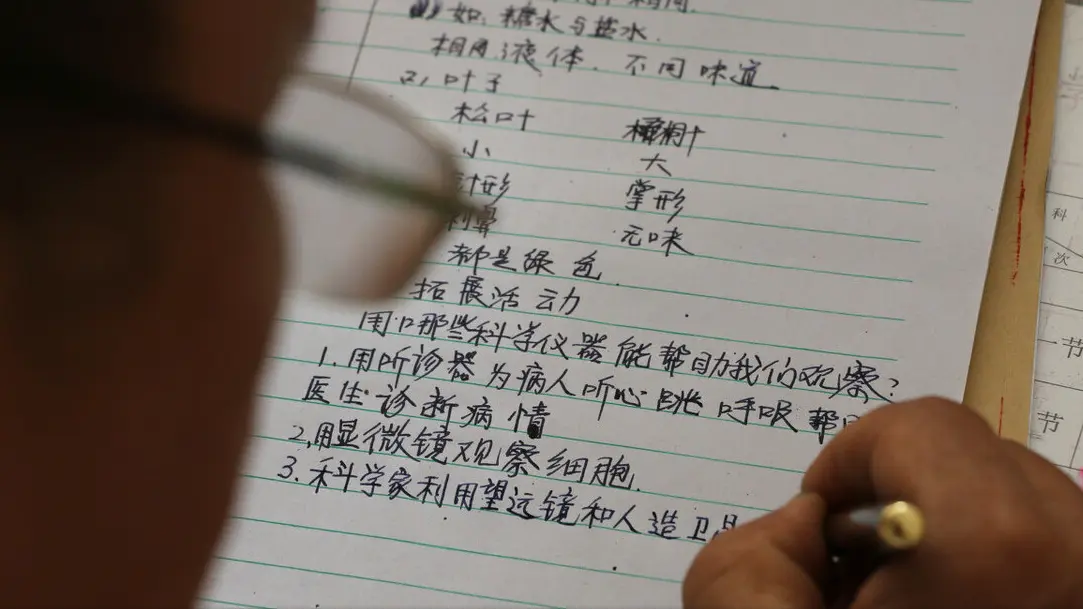 (1) 如: 糖水与盐水.
相同液体. 不同味道.
2, 叶子
松叶 叶
小 大
形 掌形
无味
都是绿色
拓展活动
用哪些科学仪器能帮助我们观察?
1. 用听诊器为病人听心跳呼吸 帮
医生诊断病情
2, 用显微镜观察细胞.
3. 科学家利用望远镜和人造卫
科
次
一节
节